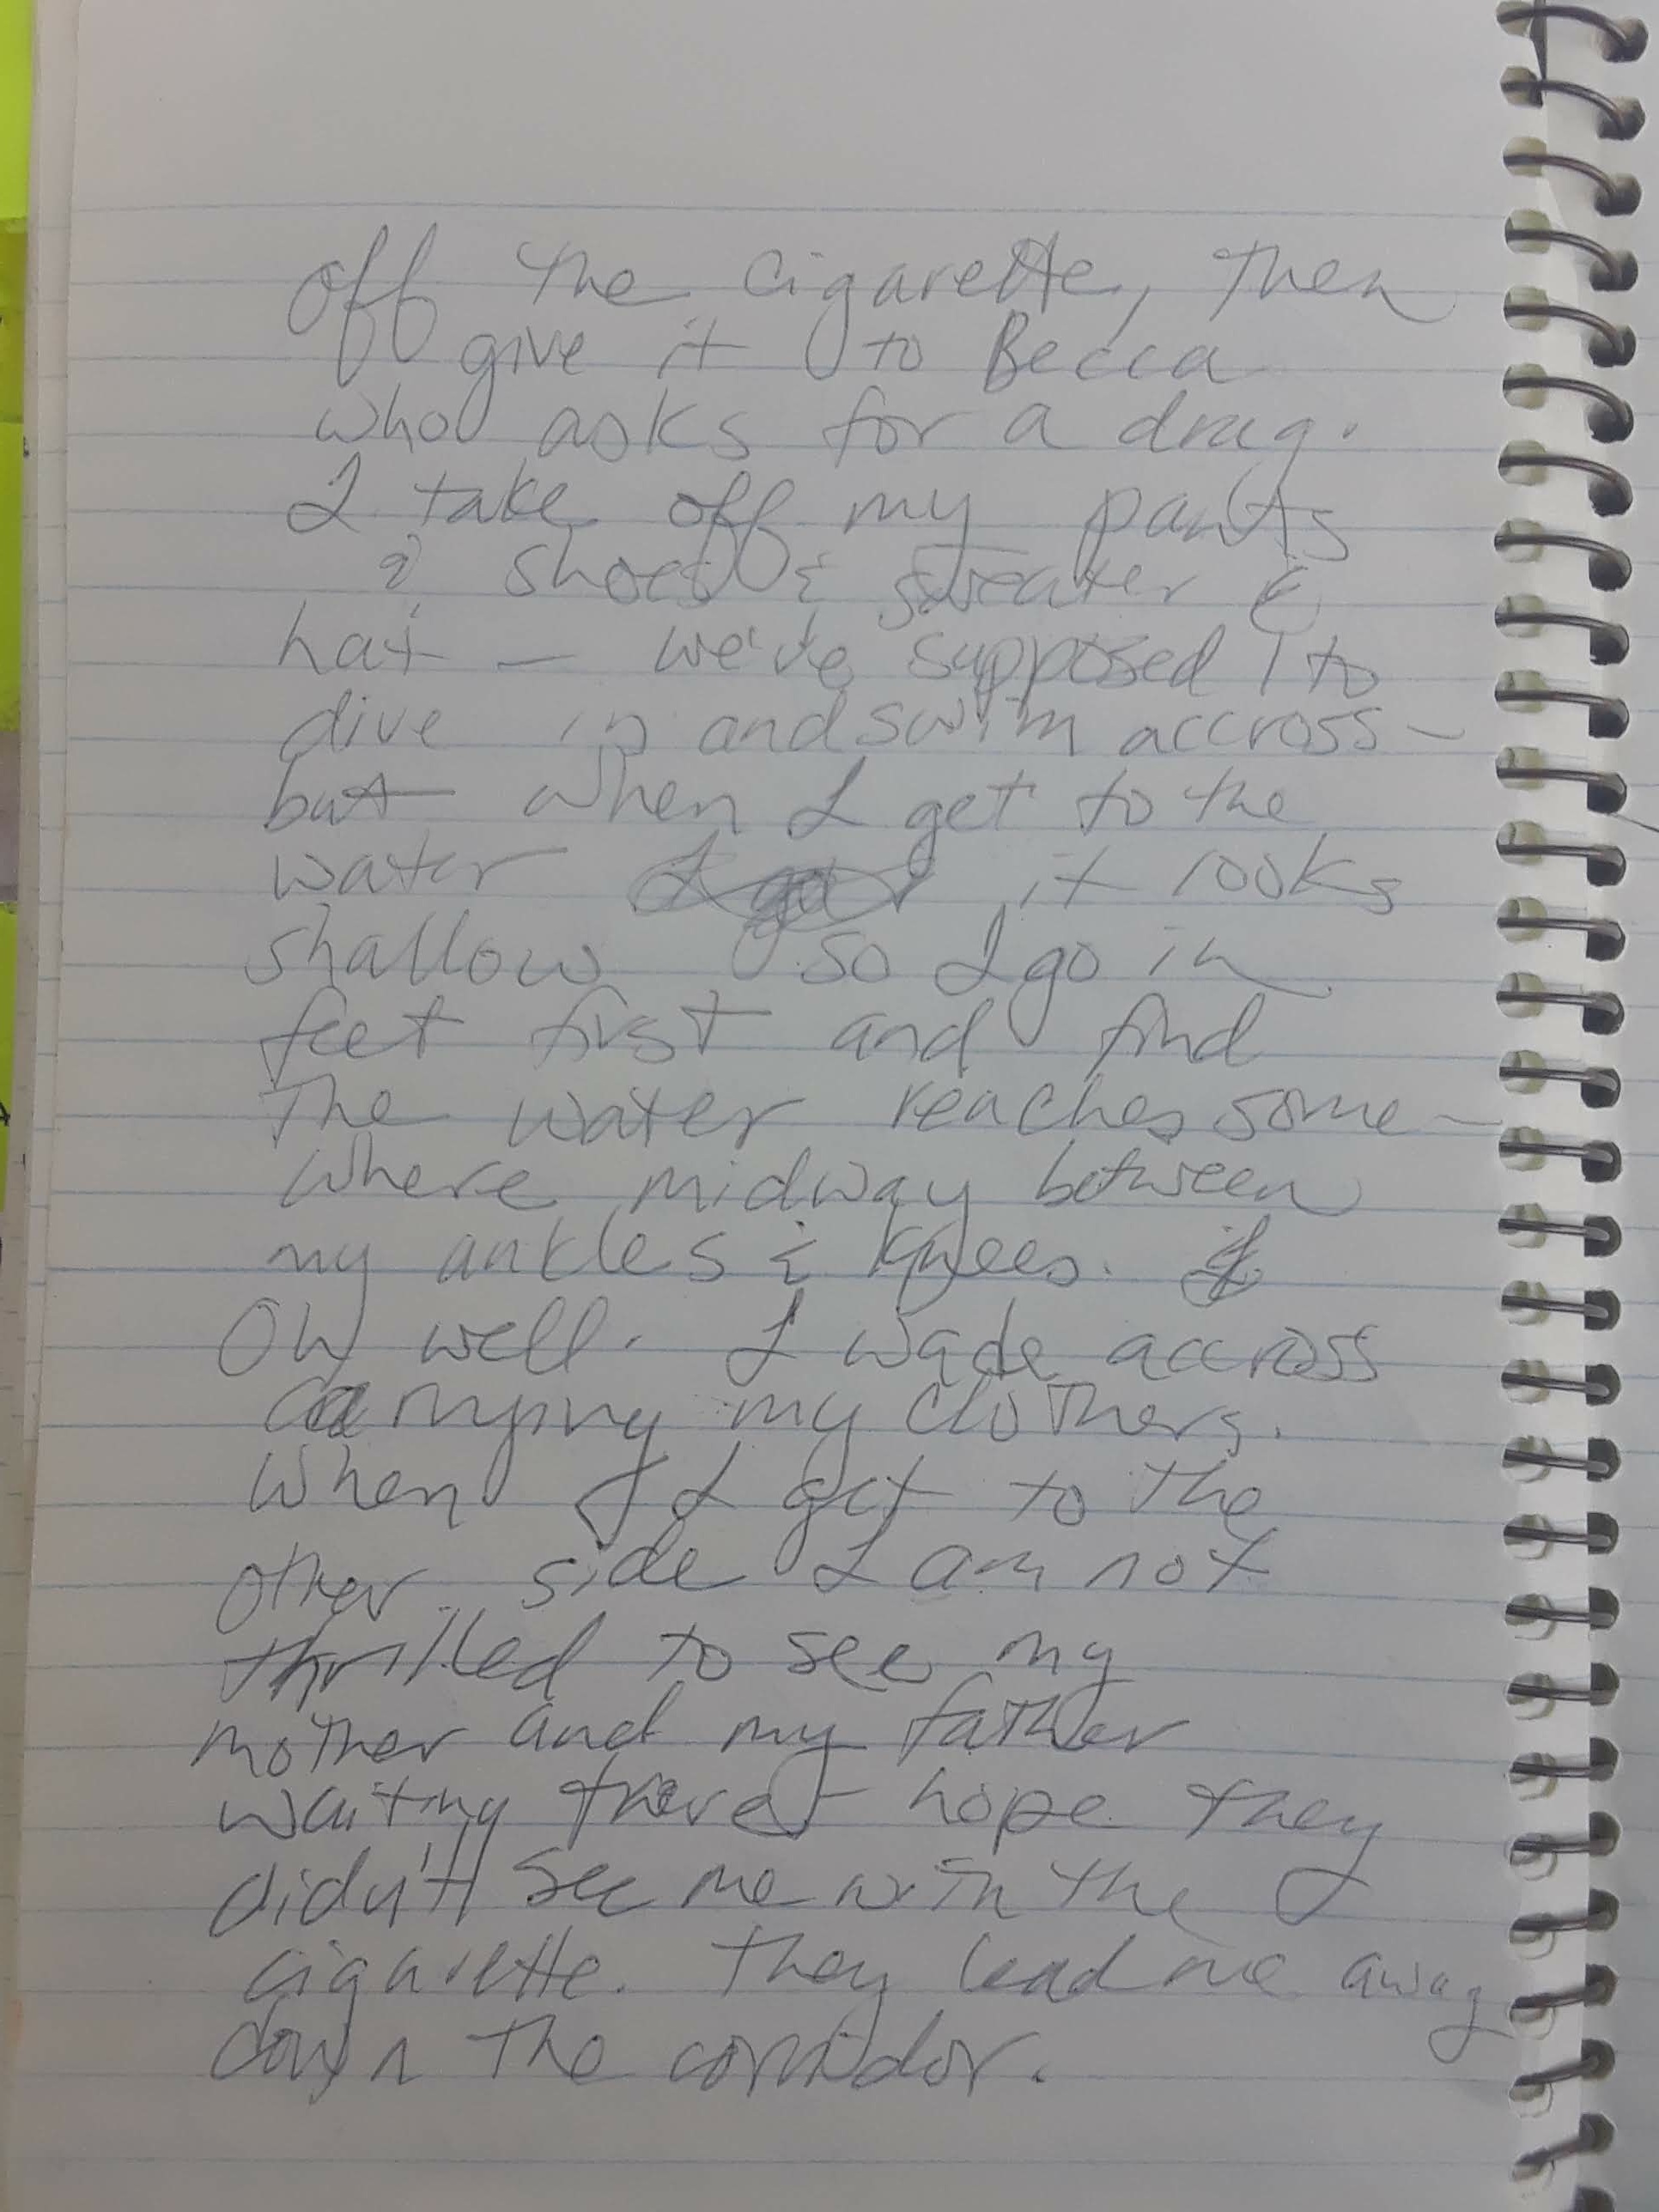 off the cigarette, then
give it to Becca
who asks for a drag.
I take off my pants
& shoes & sweater &
hat — we're supposed to
dive in and swim accross –
but when I get to the
water it looks
shallow so I go in
feet first and find
the water reaches some-
where midway between
my ankles & knees.
Oh well. I wade accross
carrying my clothers.
When I get to the
other side I am not
thrilled to see my
mother and my father
waiting there – hope they
didn't see me with the
cigarette. They lead me away
down the corridor.